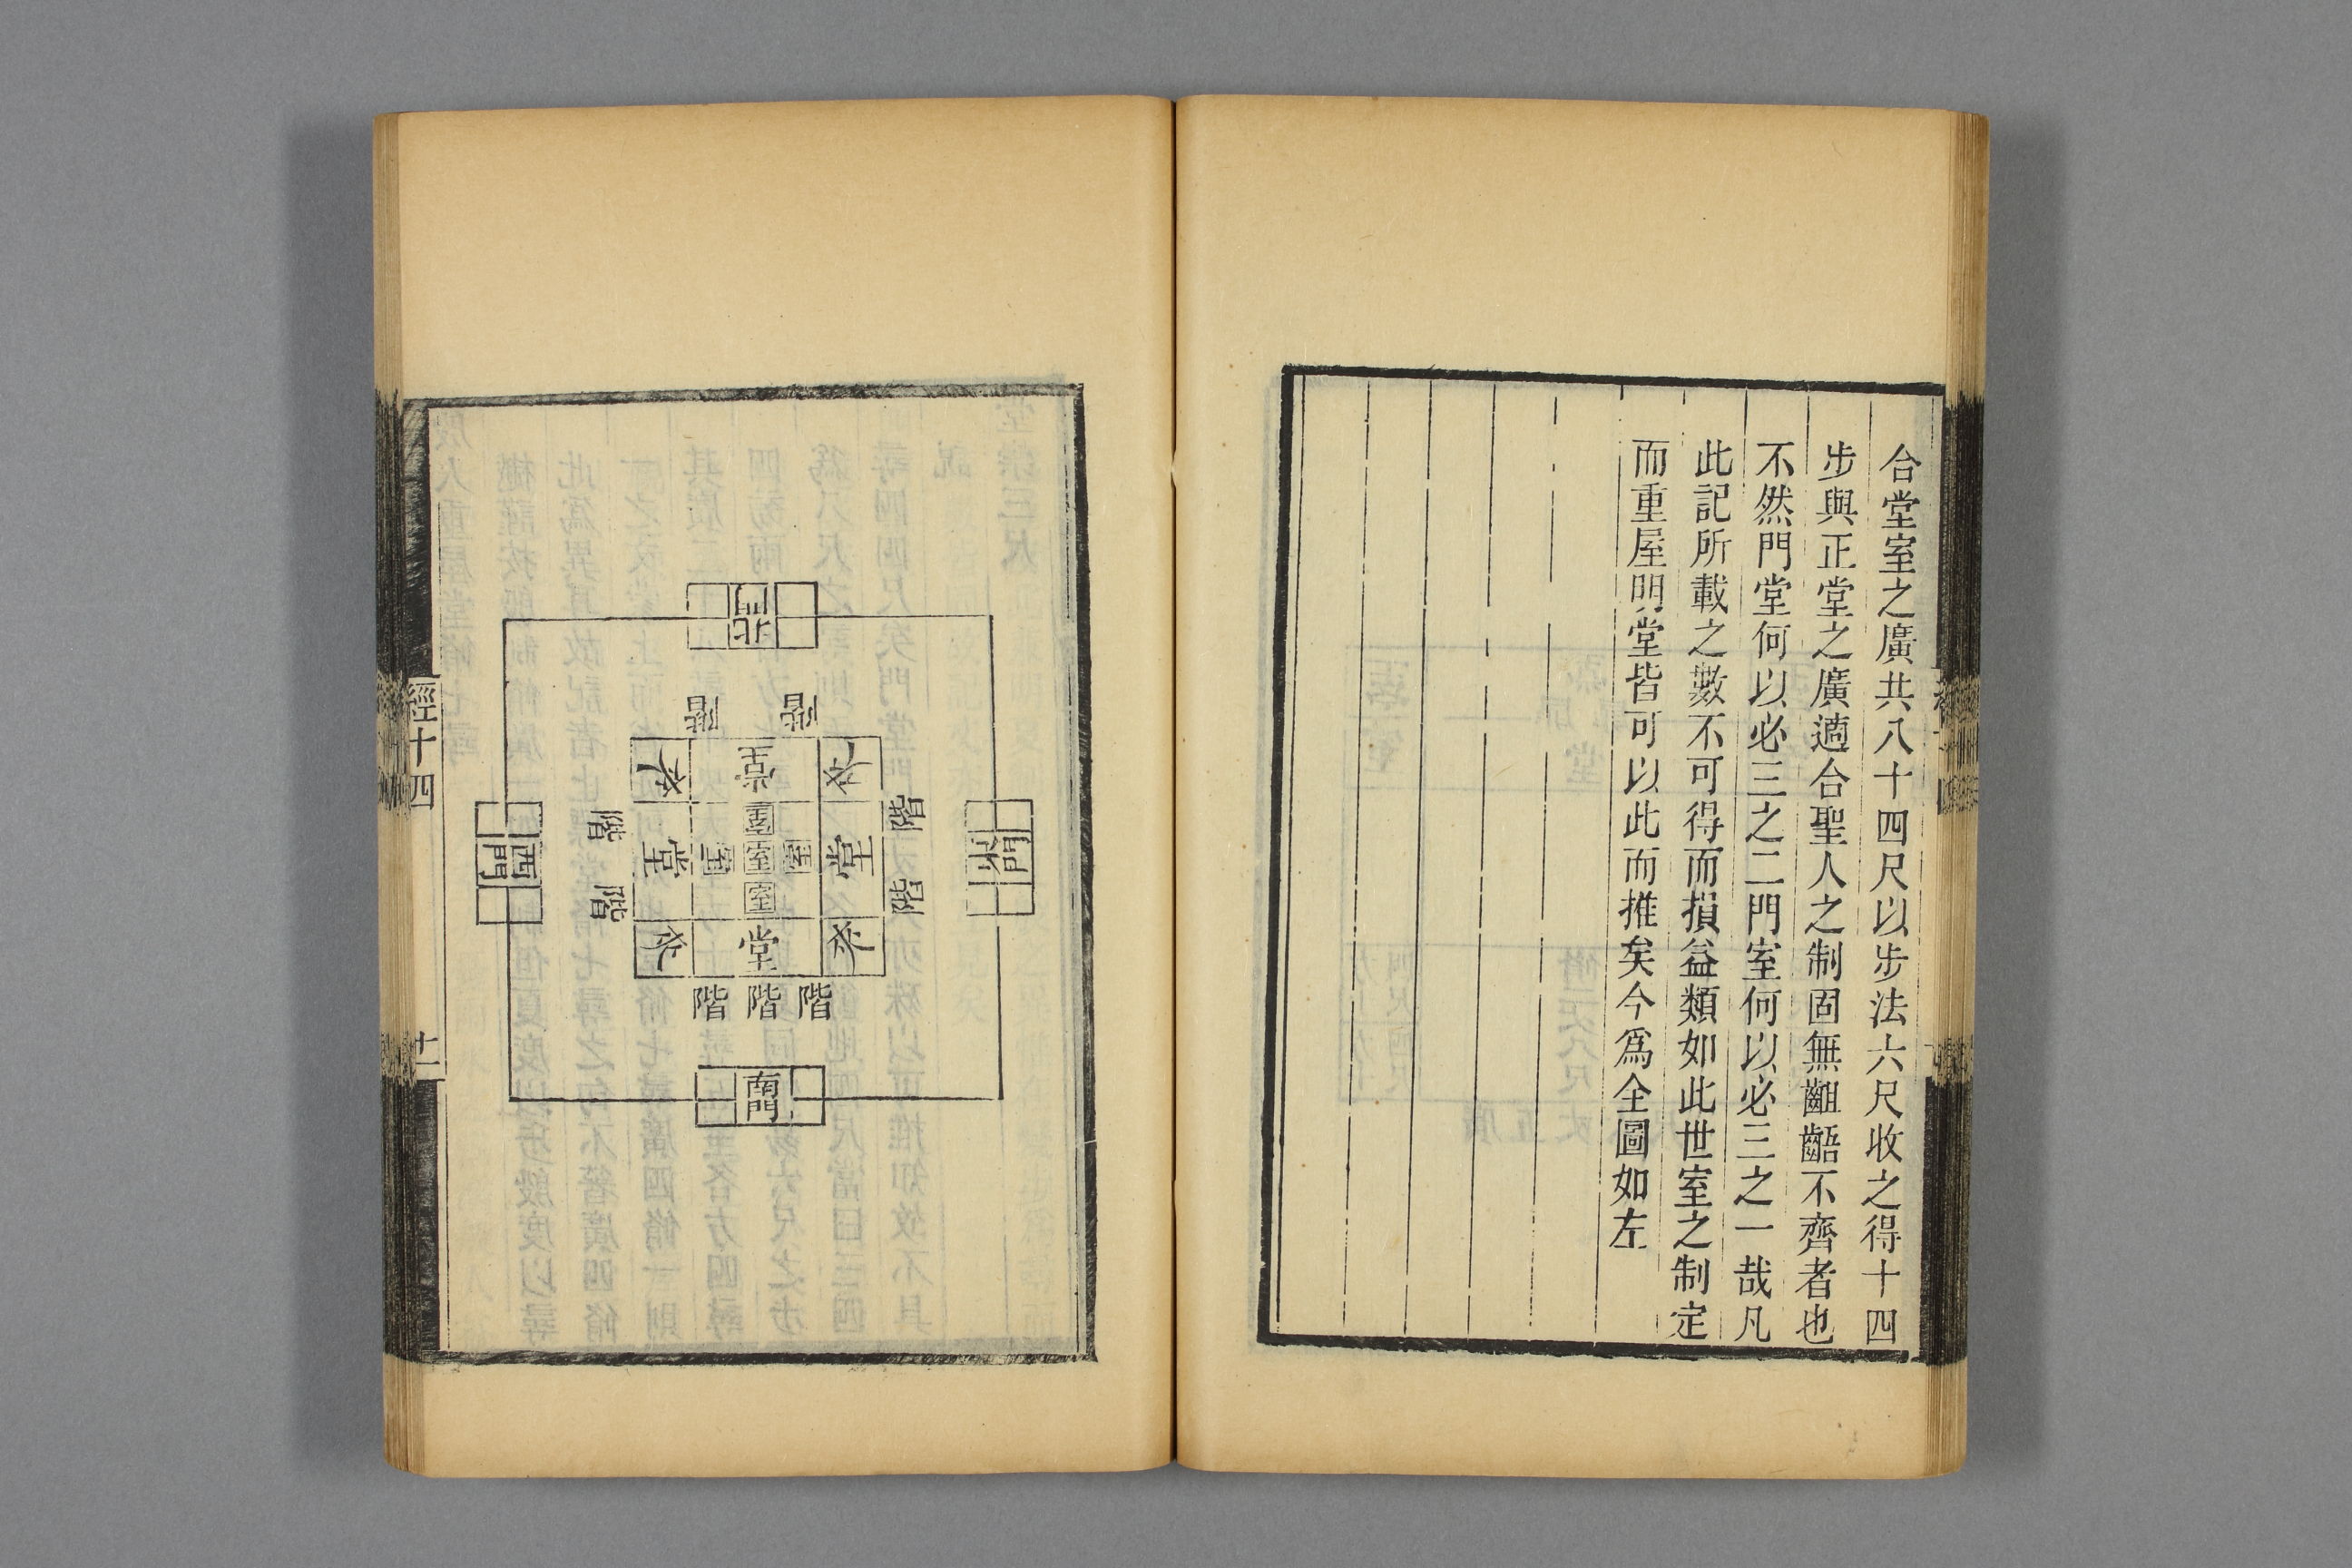 合堂室之廣共八十四尺以步法六尺收之得十四
步與正堂之廣適合聖人之制固無齟齬不齊者也
不然門堂何以必三之二門室何以必三之一哉凡
此記所載之數不可得而損益類如此世室之制定
而重屋明堂皆可以此而推矣今爲全圖如左
北門
階 階
堂
階 階
堂 室 室 室 堂
室
室
階 階
堂
階 階 階
西門
南門
經十四
十一